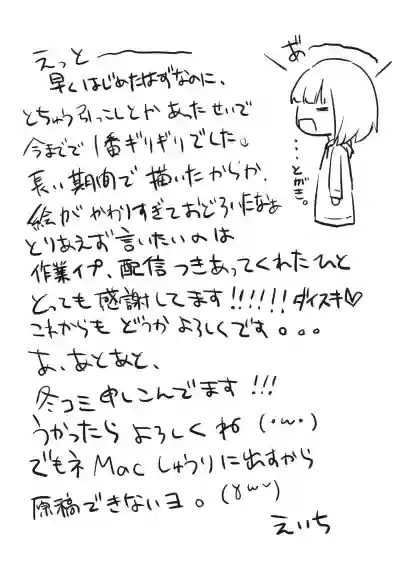 えっと――――
早くはじめたはずなのに、
とちゅう引っこしとかあったせいで
今までで1番ギリギリでした。
長い期間で描いたからか、
絵がかわりすぎておどろいたなぁ
とりあえず言いたいのは
作業イプ、配信つきあってくれたひと
とっても感謝してます!!!!!!ダイスキ♡
これからもどうかよろしくです。。。
あ、あとあと、
冬コミ申しこんでます!!!
うかったらよろしくね(・ω・)
でもネMacしゅうりに出すから
原稿できないヨ。(ˇωˇ)
えいち
あ゛
…とがき。